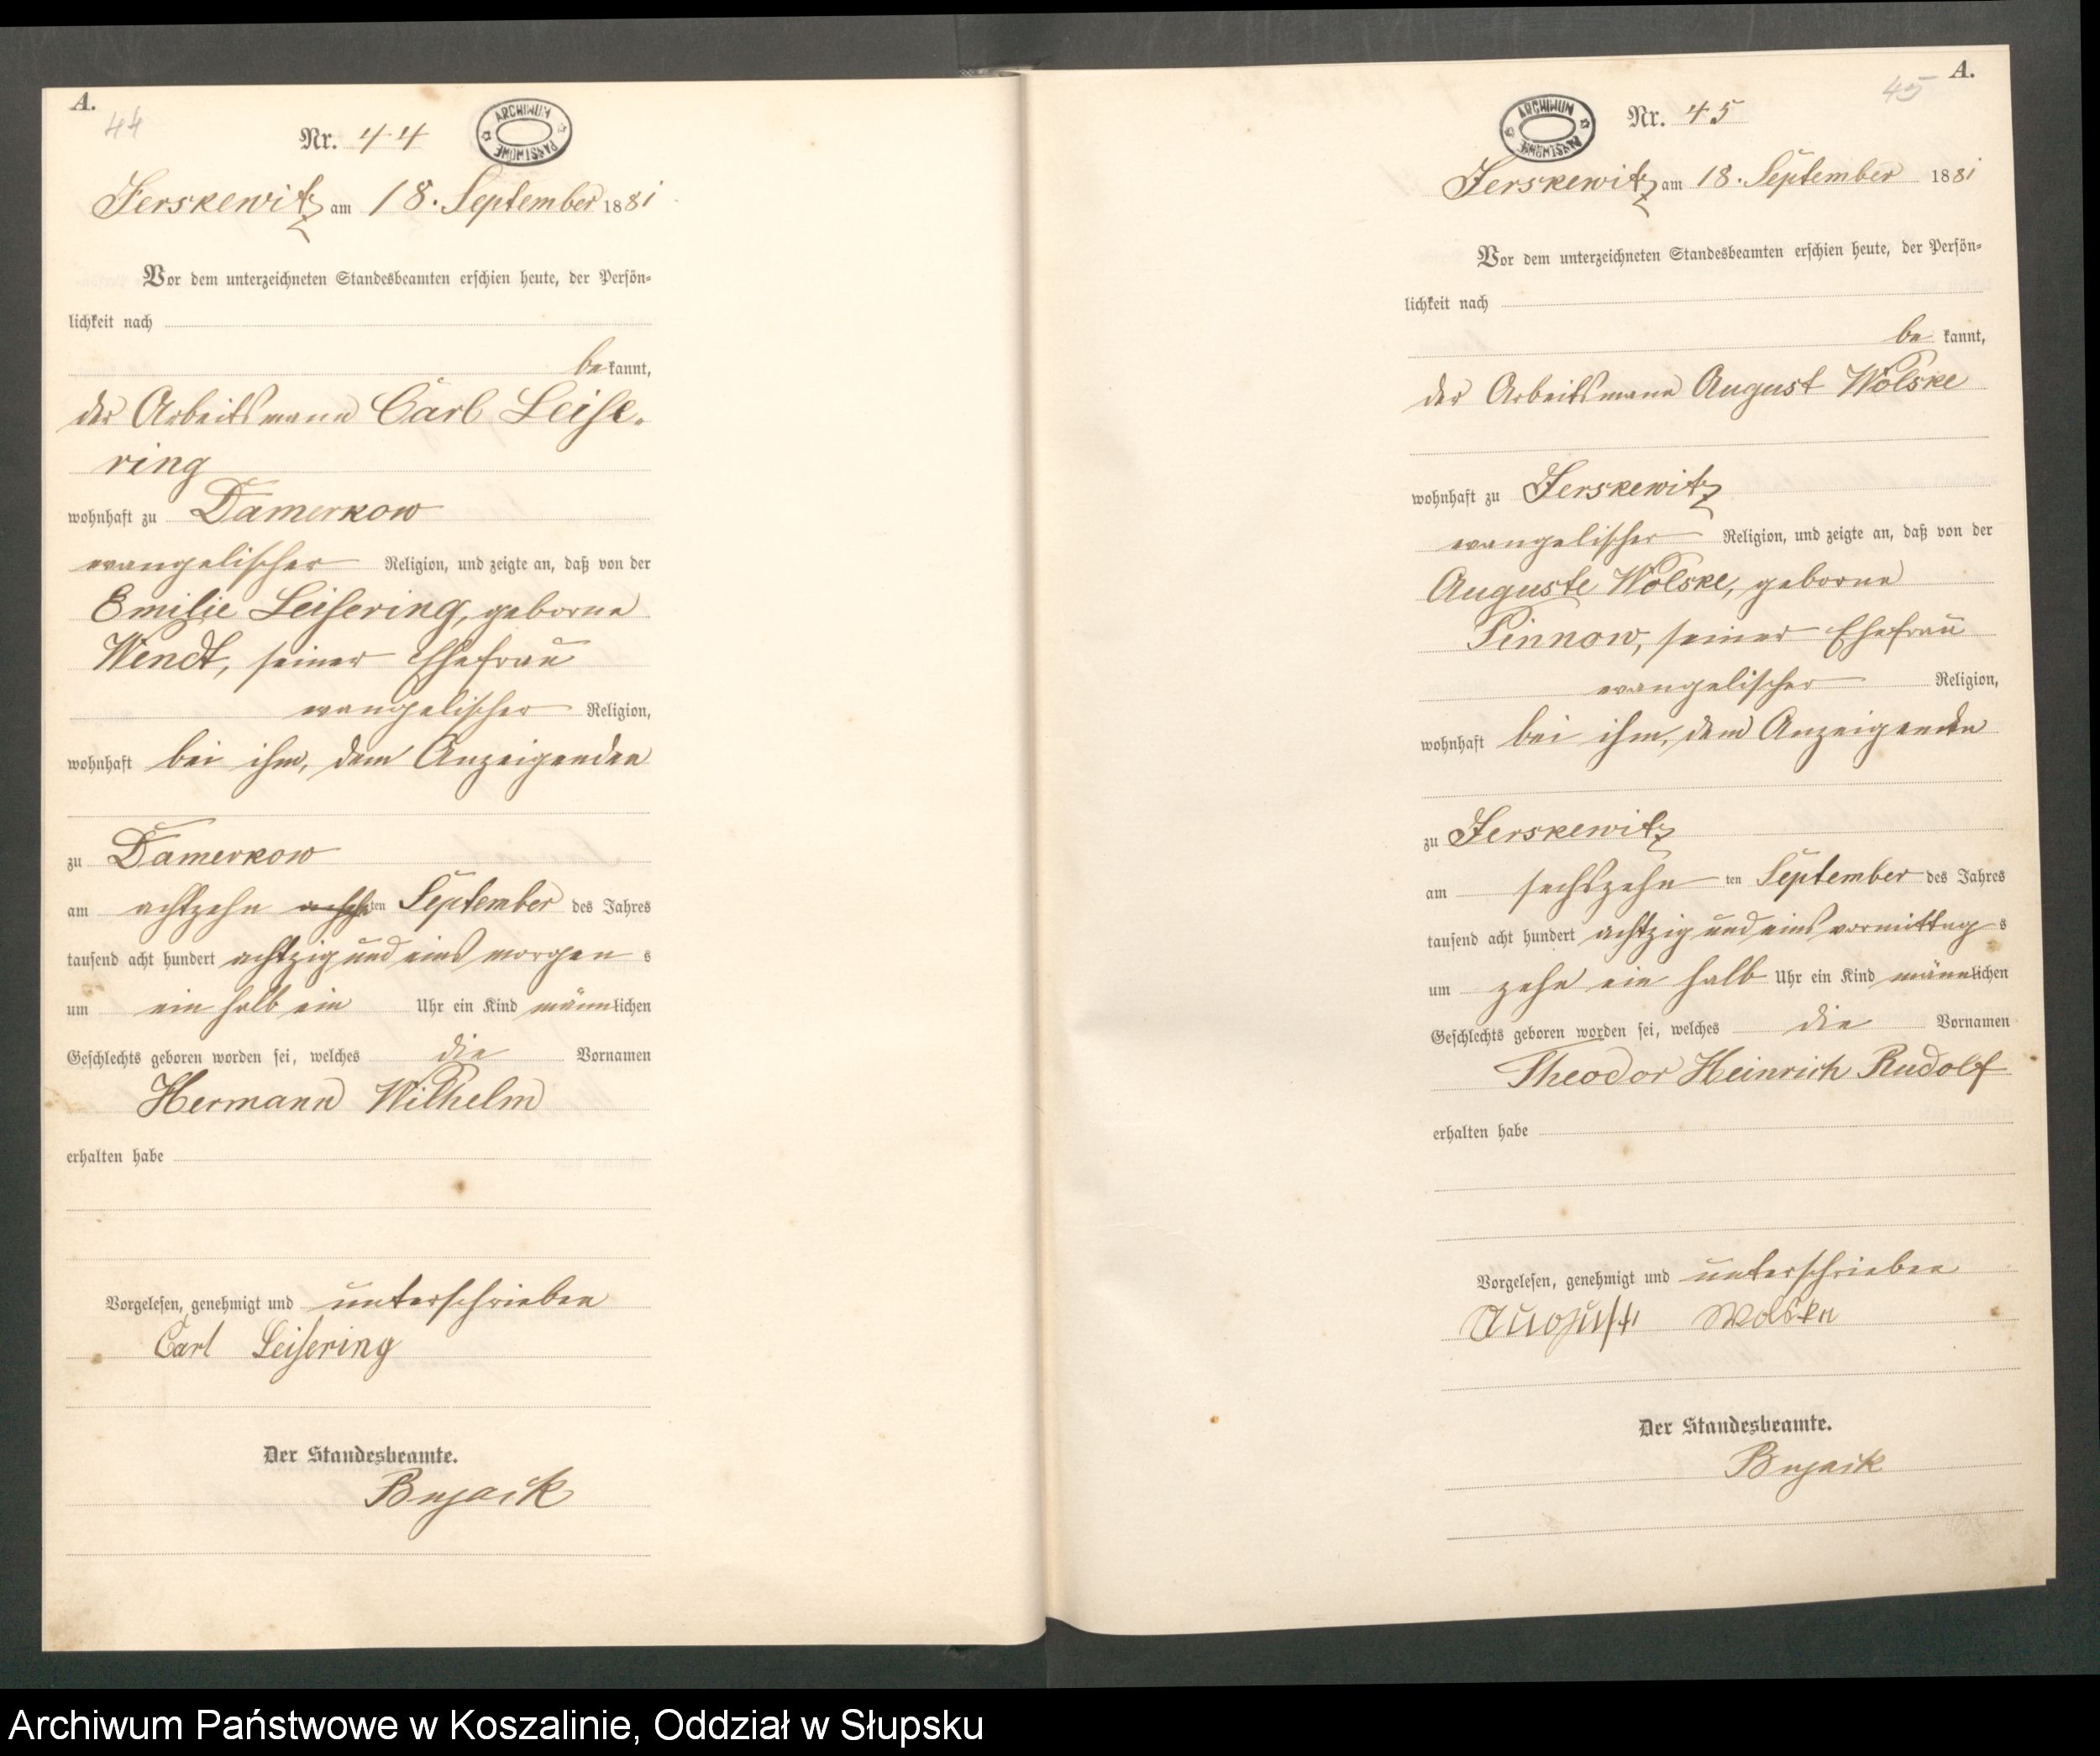 A.
44
Nr. 44
ARCHIWUM PAŃSTWOWE
Jerskewitz am 18. September 1881
Vor dem unterzeichneten Standesbeamten erschien heute, der Persön-
lichkeit nach
be kannt,
der Arbeitsmann Carl Leise-
ring
wohnhaft zu Damerkow
evangelischer Religion, und zeigte an, daß von der
Emilie Leisering, geborne
Wendt, seiner Ehefrau
evangelischer Religion,
wohnhaft bei ihm, dem Anzeigenden
zu Damerkow
am achtzehn ten September des Jahres
tausend acht hundert achtzig und eins morgen s
um ein halb ein Uhr ein Kind männlichen
Geschlechts geboren worden sei, welches die Vornamen
Hermann Wilhelm
erhalten habe
Vorgelesen, genehmigt und unterschrieben
Carl Leisering
Der Standesbeamte.
Bujack
A.
45
Nr. 45
ARCHIWUM PAŃSTWOWE
Jerskewitz am 18. September 1881
Vor dem unterzeichneten Standesbeamten erschien heute, der Persön-
lichkeit nach
be kannt,
der Arbeitsmann August Wolske
wohnhaft zu Jerskewitz
evangelischer Religion, und zeigte an, daß von der
Auguste Wolske, geborne
Pinnow, seiner Ehefrau
evangelischer Religion,
wohnhaft bei ihm, dem Anzeigenden
zu Jerskewitz
am sechszehn ten September des Jahres
tausend acht hundert achtzig und eins vormittag s
um zehn ein halb Uhr ein Kind männlichen
Geschlechts geboren worden sei, welches die Vornamen
Theodor Heinrich Rudolf
erhalten habe
Vorgelesen, genehmigt und unterschrieben
August Wolske
Der Standesbeamte.
Bujack
Archiwum Państwowe w Koszalinie, Oddział w Słupsku